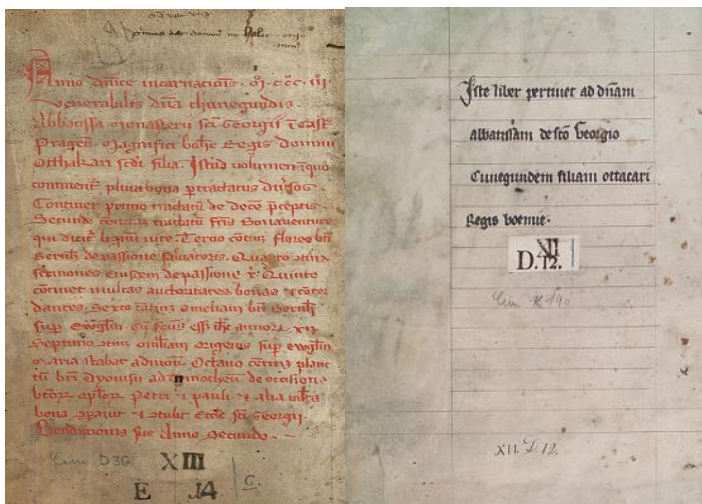 Anno dnice incarnacionis . M . ccc . iii
venerabilis dna chunegundis .
Abbatissa monasterii sci Georgii ī cast°
Pragen̄ . Magnifici bohe Regis domini
Otthakari scdi filia . Istud volumen ī quo
continent² plura bona p tractatus diūsos .
Continet primo tractatū de decē p̄ceptis .
Secundo continet tractatū fris Bonauenture
qui dicit² lignū uite . Tercio cōtinet flores bti
Bernh̄ de passione saluatoris . Quarto
sermones eiusdem de passione
cōtinet multas auctoritates bonas ⁊ concor
dantes . Sexto omeliam bti Bernh̄
sup ewāgl'm cū fcus esset ih'c annorū xii
Septimo omīliam Origenis sup ewāgl'm
Maria stabat ad monū . Octauo planc
tū bti dyonisii ad timotheū de occisione
btorū aplorū Petri ⁊ pauli ⁊ alia multa
bona ⁊ ecctle sci Georgii
Benedictionis sue Anno secundo .
Cim D 36 XIII
E 14 C.
Iste liber pertinet ad dnam
abbatissam de scto Georgio
Cunegundem filiam ottacari
Regis boemie .
XII
D. 12.
Cim K 190
XII. D. 12.